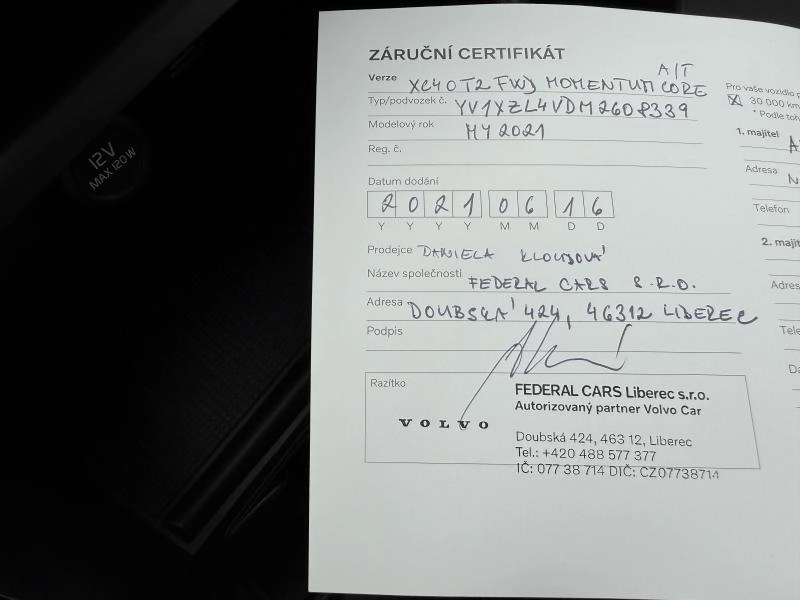 12V
MAX 120W
ZÁRUČNÍ CERTIFIKÁT
A/T
Verze XC40 T2 FWD MOMENTUM CORE
Typ/podvozek č. YV1XZL4VDM2608339
Modelový rok MY 2021
Reg. č.
Datum dodání
2 0 2 1 0 6 1 6
Y Y Y Y M M D D
Prodejce DANIELA
Název společnosti FEDERAL CARS S.R.O.
Adresa DOUBSKÁ 424, 46312 LIBEREC
Podpis
Razítko
VOLVO
FEDERAL CARS Liberec s.r.o.
Autorizovaný partner Volvo Car
Doubská 424, 463 12, Liberec
Tel.: +420 488 577 377
IČ: 077 38 714 DIČ: CZ07738714
Pro vaše vozidlo p
30 000 km
* Podle toh
1. majitel
Adresa
Telefon
2. majit
Adres
Tele